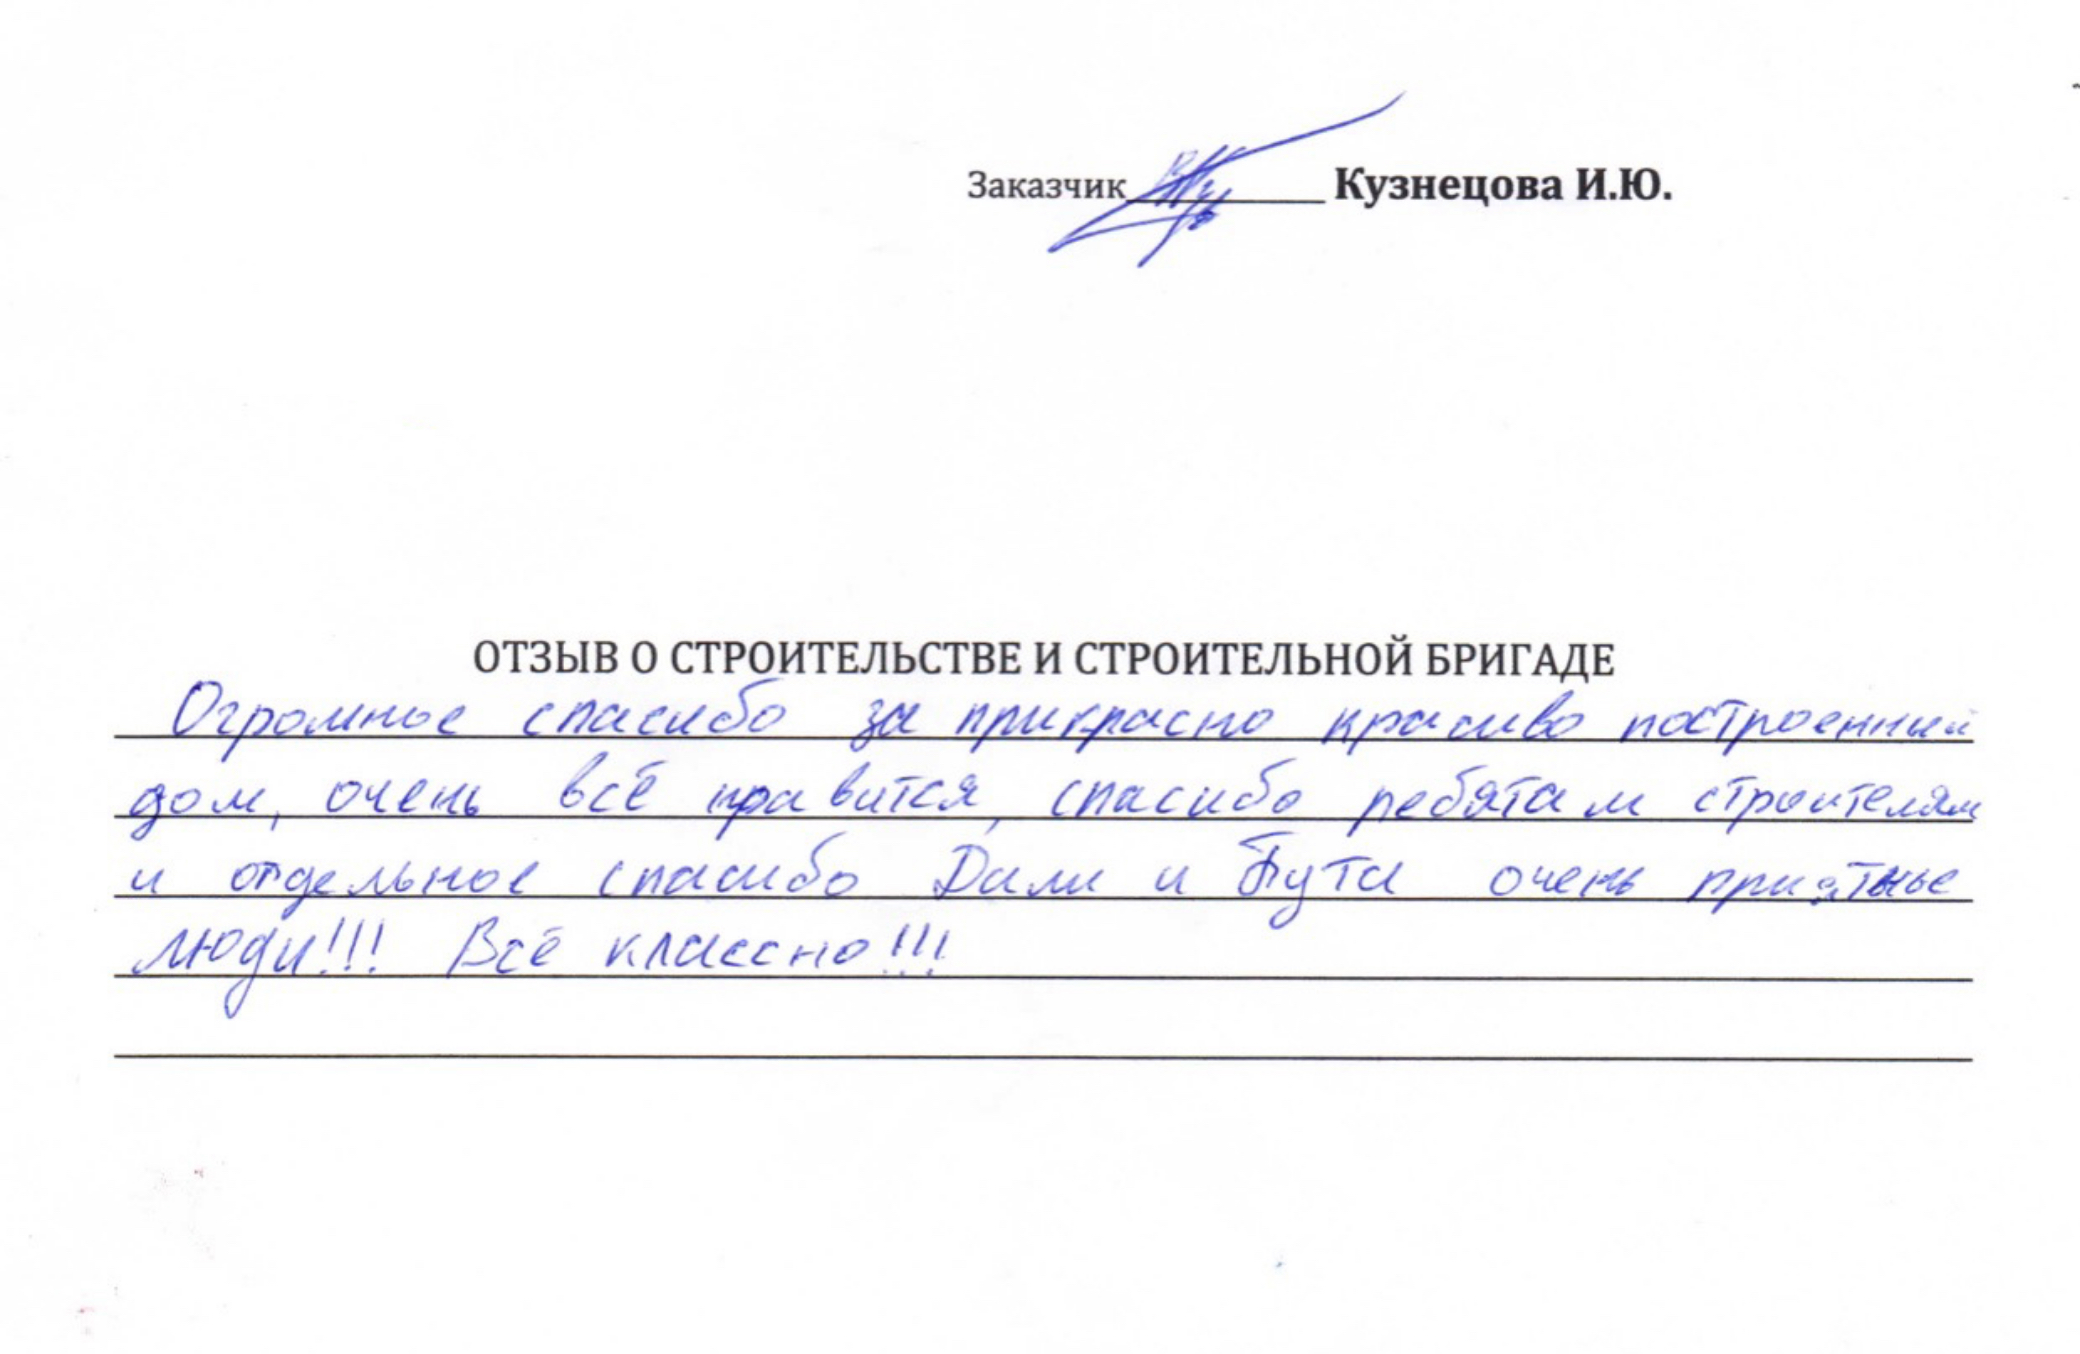 Заказчик Кузнецова И.Ю.
ОТЗЫВ О СТРОИТЕЛЬСТВЕ И СТРОИТЕЛЬНОЙ БРИГАДЕ
Огромное спасибо за прикрасно красиво построенный
дом, очень всё нравится, спасибо ребятам строителям
и отдельное спасибо и очень приятные
люди!!! Всё классно!!!